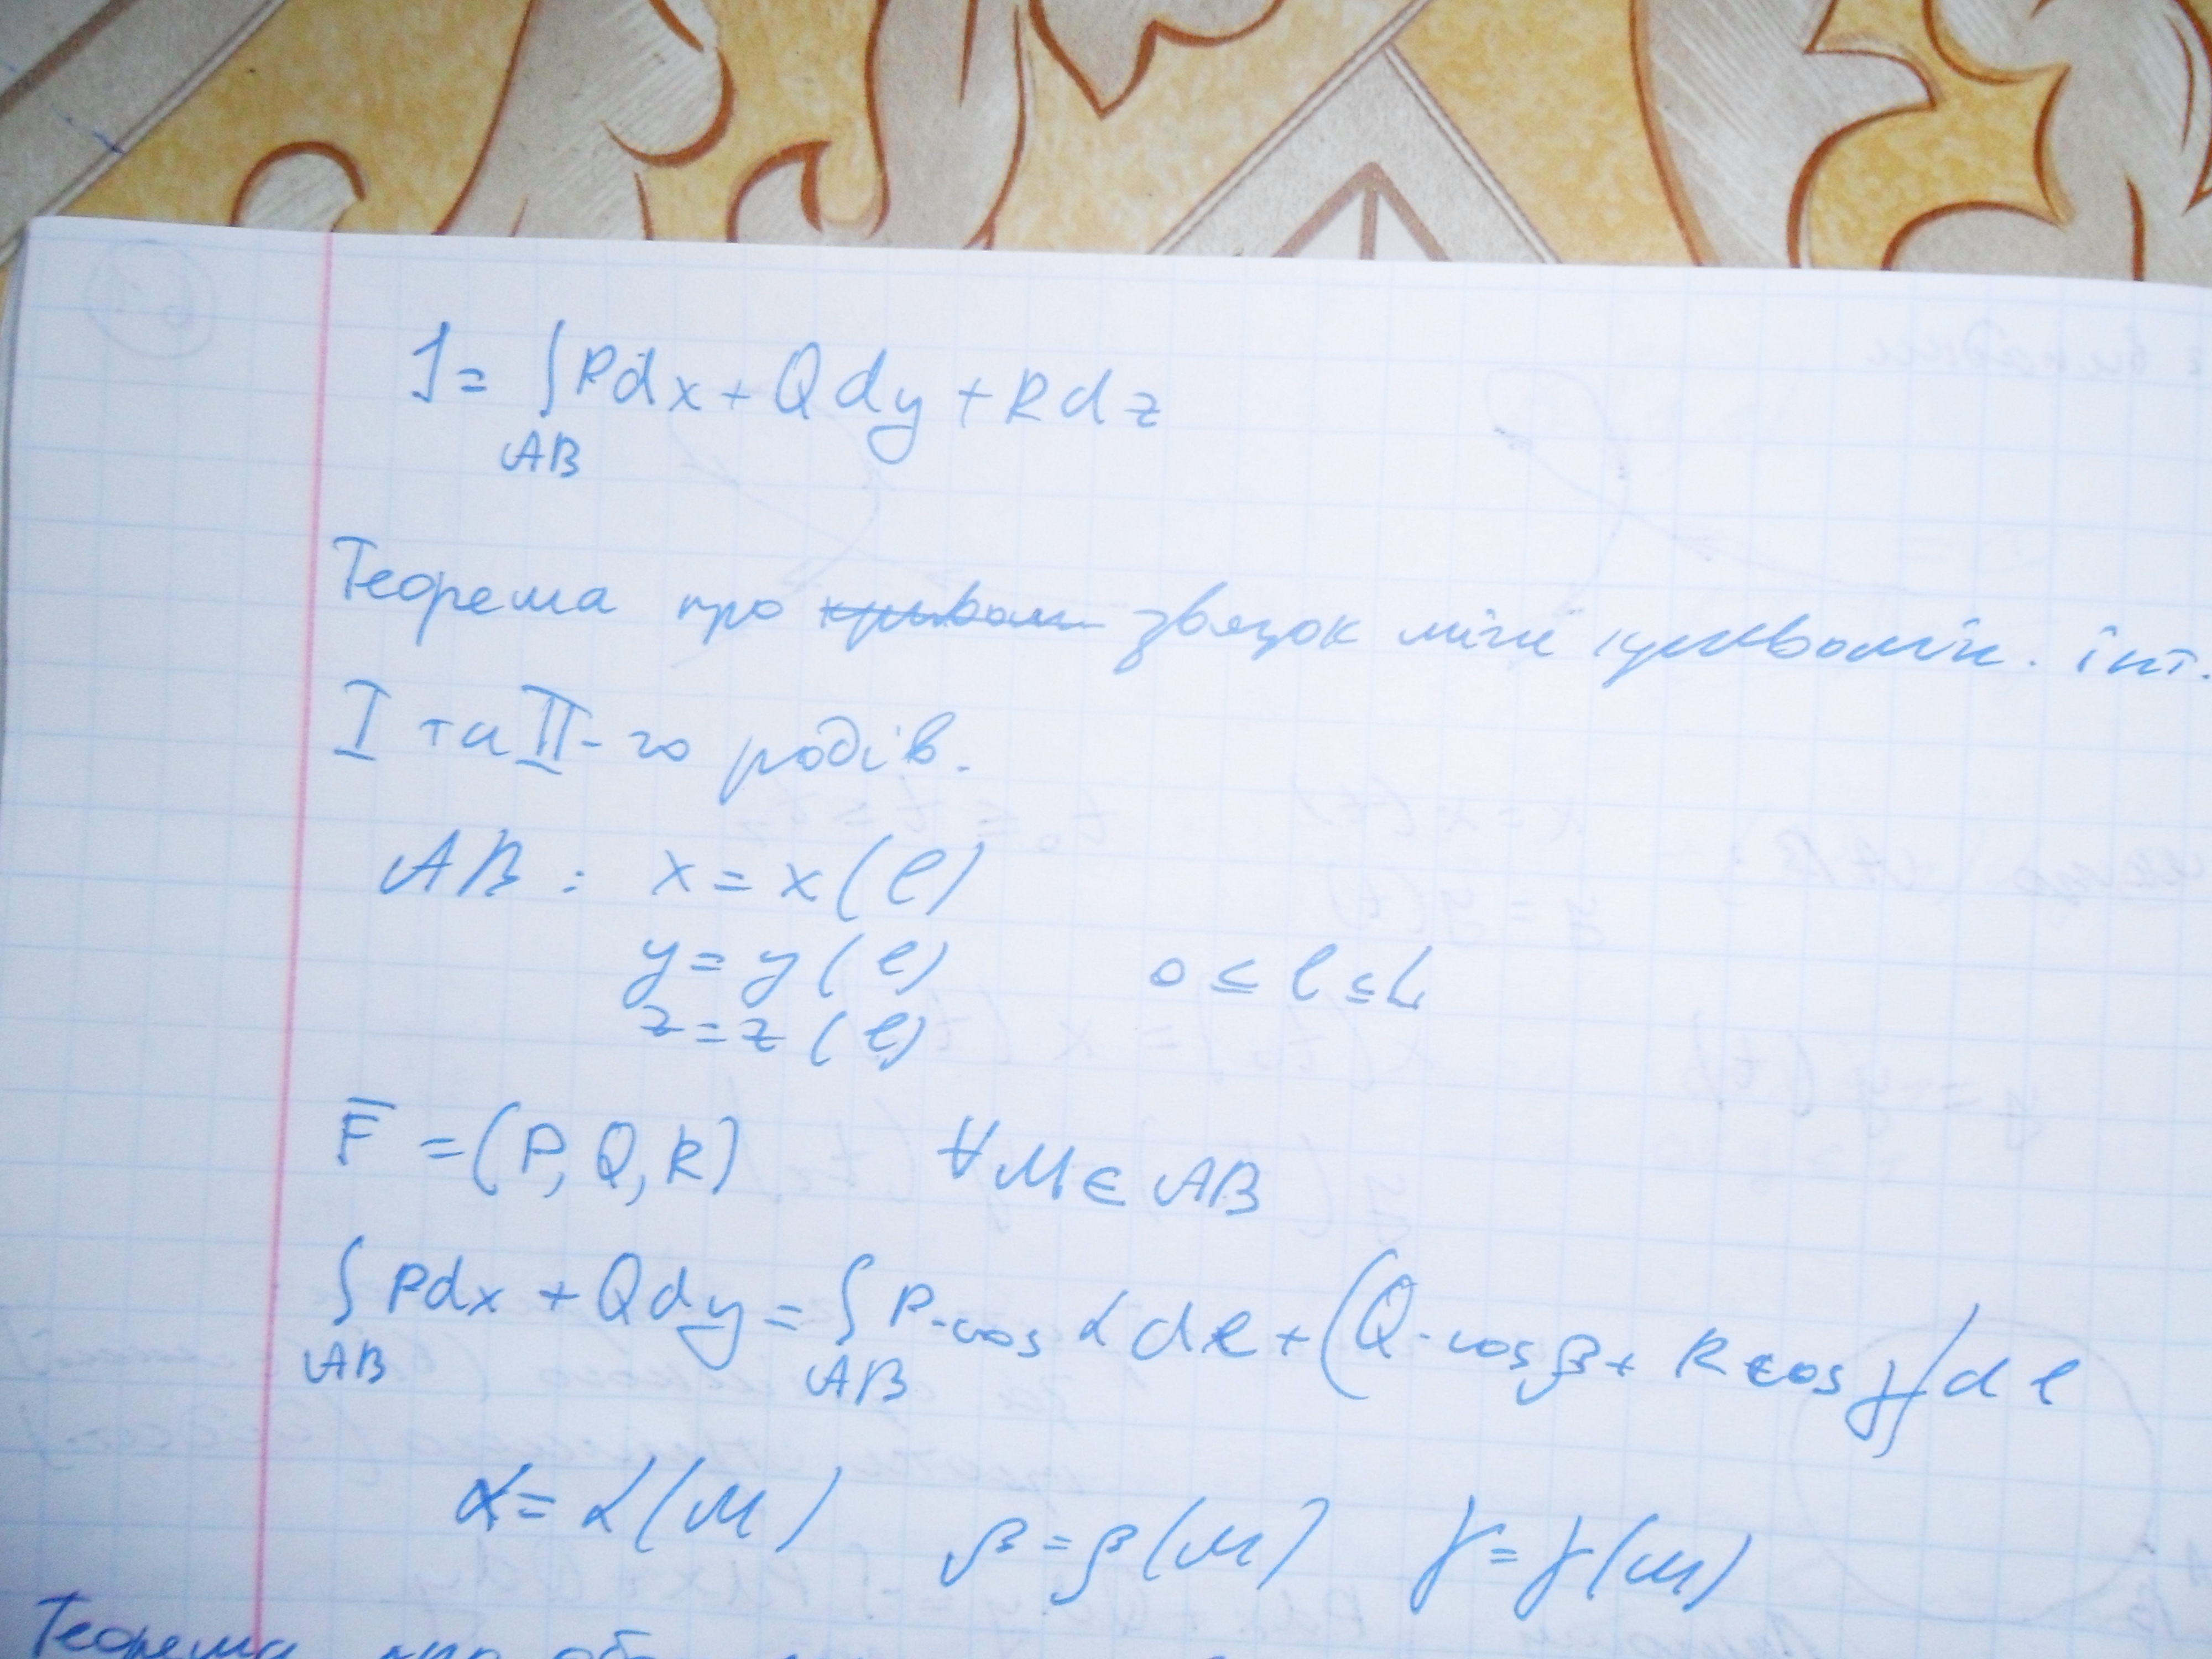 J = ∫ Pdx + Qdy + Rdz
AB
Теорема про звязок між криволін. інт.
I та II-го родів.
AB : x = x(l)
y = y(l) 0 ≤ l ≤ L
z = z(l)
F̅ = (P, Q, R) ∀M ∈ AB
∫ Pdx + Qdy = ∫ P·cos α dl + (Q·cos β + R cos γ) dl
AB AB
α = α(M) β = β(M) γ = γ(M)
Теорема про